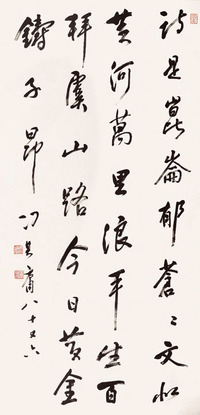 诗是崑崙郁蒼〻文似
黄河萬里浪平生百
拜虞山路今日黄金
鑄子昂
冯其庸八十又六